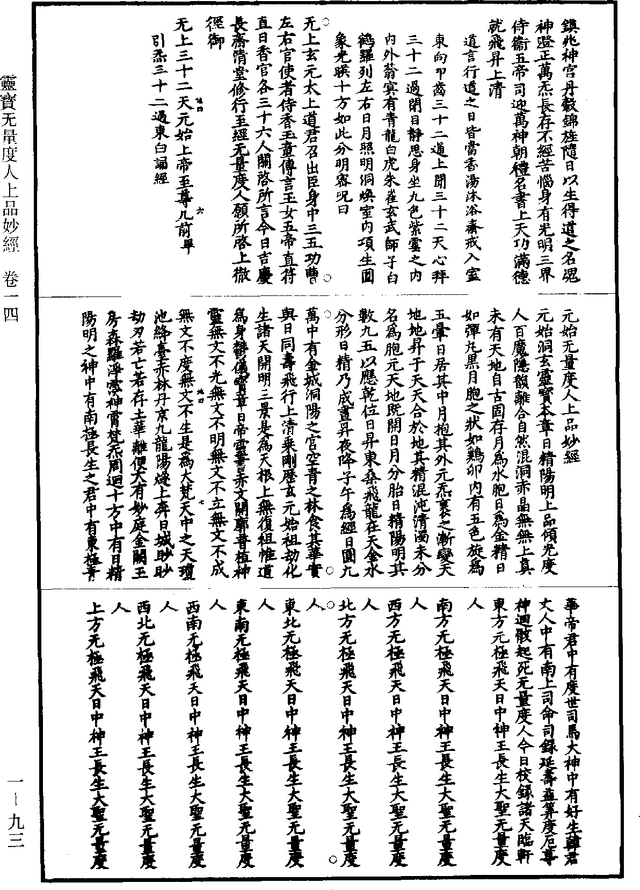 鎮兆神宮丹轂錦旌隨日以生得道之名魂
神澄正萬炁長存不經苦惱身有光明三界
侍衞五帝司迎萬神朝禮名書上天功滿德
就飛昇上清
道言行道之日皆當香湯沐浴齋戒入室
東向叩齒三十二通上聞三十二天心拜
三十二過閉目靜思身坐九色紫雲之內
內外蓊冥有青龍白虎朱雀玄武師子白
鶴羅列左右日月照明洞煥室內項生圓
象光暎十方如此分明密呪曰
无上玄元太上道君召出臣身中三五功曹
左右官使者侍香玉童傳言玉女五帝直符
直日香官各三十六人關啓所言今日吉慶
長齋清堂修行至經无量度人願所啓上徹
徑御
无上三十二天元始上帝至尊几前畢
引炁三十二過東向誦經
元始无量度人上品妙經
元始洞玄靈寶本章日精陽明上品傾光度
人百魔隱韻離合自然混洞赤晶無無上真
未有天地自古固存月為水胞日為金精日
如彈丸黑月胞之狀如鷄卵內有五色旋為
五暈日居其中月抱其外元炁裹之漸變天
地地昇于天天合於地其精混沌清濁未分
名為胞元天地既開日月分胎日精陽明其
數九五以應乾位日昇東桑飛龍在天金水
分形日精乃成晝昇夜降子午為經日圓九
萬中有金城洞陽之宮空青之林食其華實
與日同壽飛行上清乘剛歷玄元始祖劫化
生諸天開明三景是為天根上無復祖惟道
為身鬱儀寶章日帝靈書赤文開廓普植神
靈無文不光無文不明無文不立無文不成
無文不度無文不生是為大梵天中之天瓊
池絳臺赤林丹京九龍陽燧上奔日城眇眇
劫刃若亡若存土華離便大有妙庭金闕玉
房森羅淨雲神霄梵炁周迴十方中有日精
陽明之神中有南極長生之君中有東極青
華帝君中有度世司馬大神中有好生韓君
丈人中有南上司命司錄延壽益算度厄尊
神迴骸起死无量度人今日校錄諸天臨軒
東方无極飛天日中神王長生大聖无量度
人
南方无極飛天日中神王長生大聖无量度
人
西方无極飛天日中神王長生大聖无量度
人
北方无極飛天日中神王長生大聖无量度
人
東北无極飛天日中神王長生大聖无量度
人
東南无極飛天日中神王長生大聖无量度
人
西南无極飛天日中神王長生大聖无量度
人
西北无極飛天日中神王長生大聖无量度
人
上方无極飛天日中神王長生大聖无量度
靈寶无量度人上品妙經 卷一四
一－九三